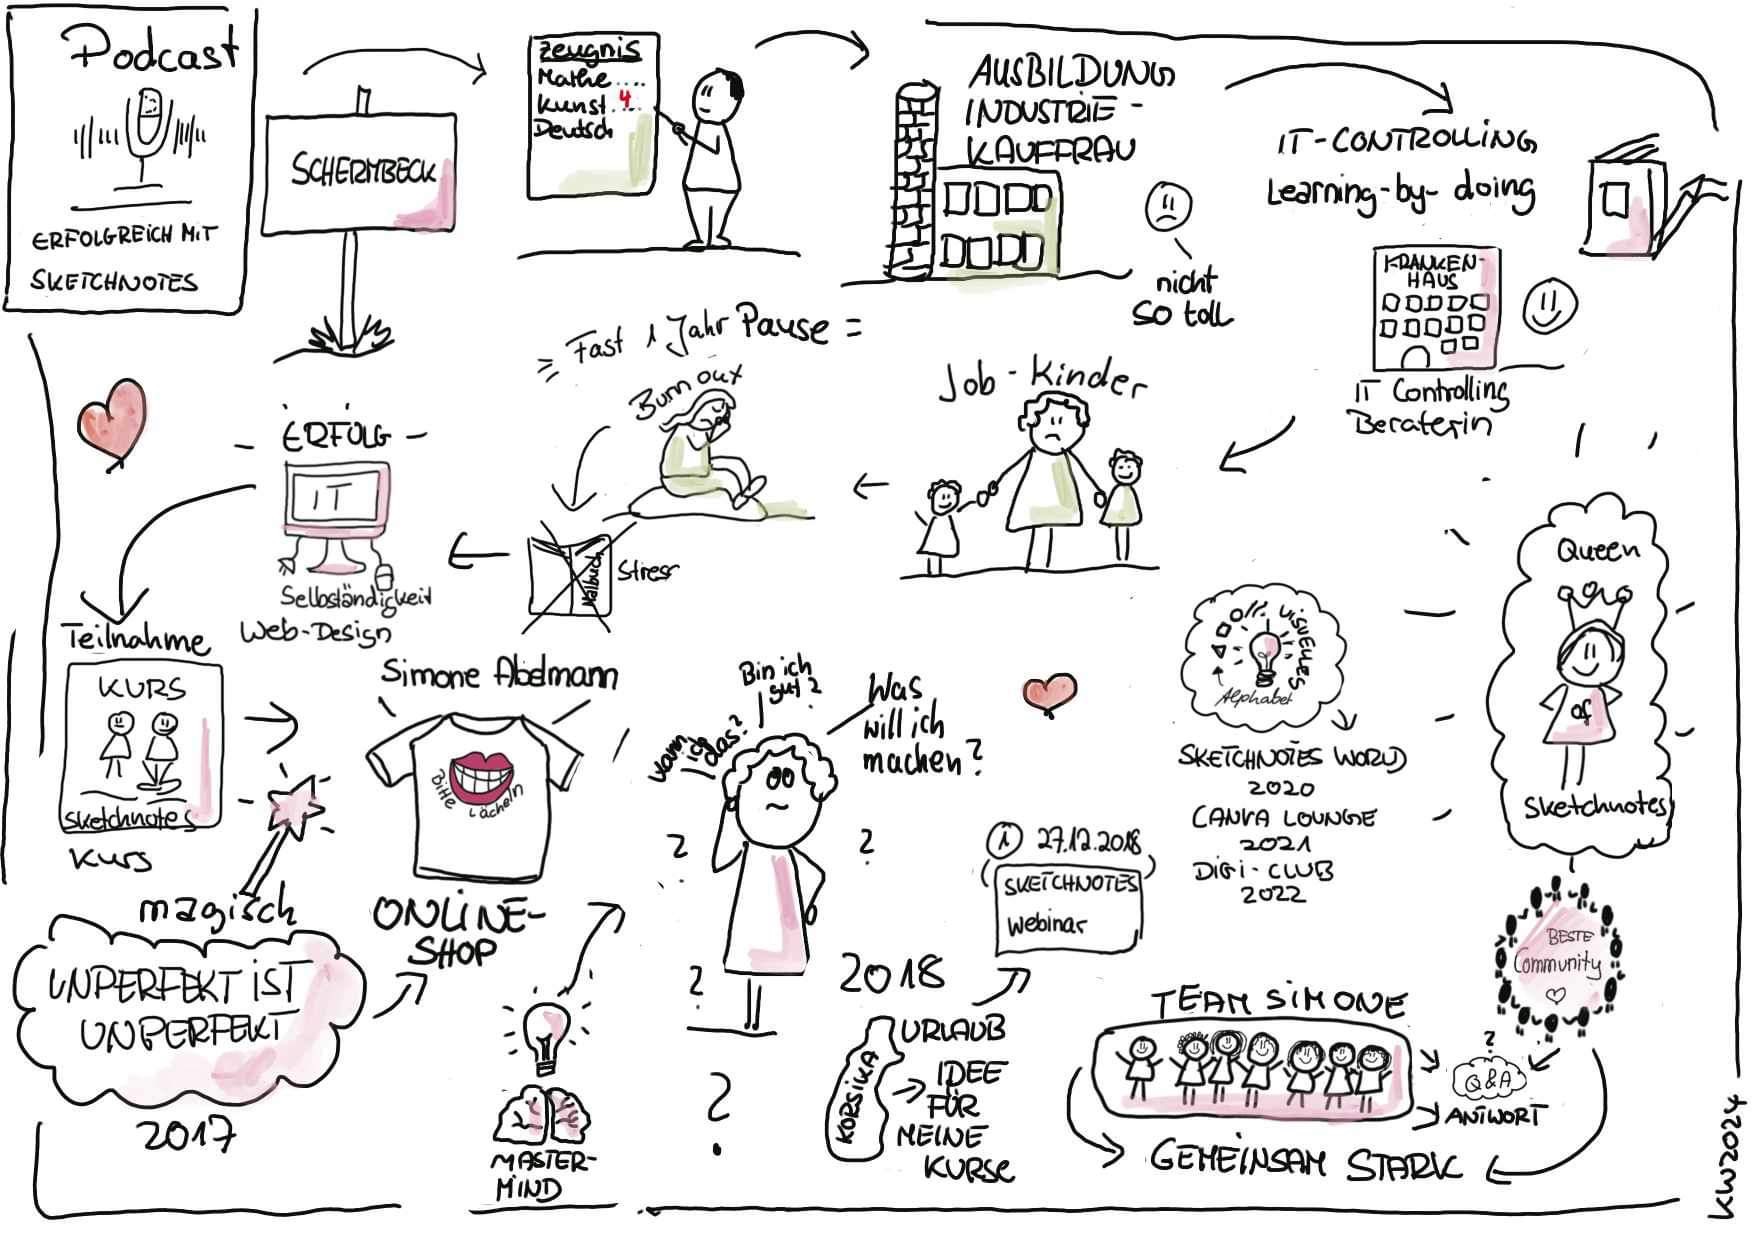 Podcast
ERFOLGREICH MIT
SKETCHNOTES
SCHERMBECK
Zeugnis
Mathe ....
Kunst 4 ..
Deutsch
AUSBILDUNG
INDUSTRIE-
KAUFFRAU
nicht
so toll
IT-CONTROLLING
Learning-by-doing
KRANKEN-
HAUS
IT Controlling
Beraterin
Job-Kinder
Fast 1 Jahr Pause =
Burn out
Malbuch
Stress
ERFOLG
IT
Selbständigkeit
Web-Design
Teilnahme
KURS
Sketchnotes
Kurs
magisch
UNPERFEKT IST
UNPERFEKT
2017
Simone Abelmann
Bitte
Lächeln
ONLINE-
SHOP
MASTER-
MIND
Kann
ich
das?
Bin ich
gut?
Was
will ich
machen?
?
?
?
?
2018
KORSIKA
URLAUB
IDEE
FÜR
MEINE
KURSE
i 27.12.2018
SKETCHNOTES
Webinar
VISUELLES
Alphabet
SKETCHNOTES WORLD
2020
CANVA LOUNGE
2021
DIGI-CLUB
2022
Queen
of
Sketchnotes
BESTE
Community
TEAM SIMONE
?
Q&A
ANTWORT
GEMEINSAM STARK
KW2024